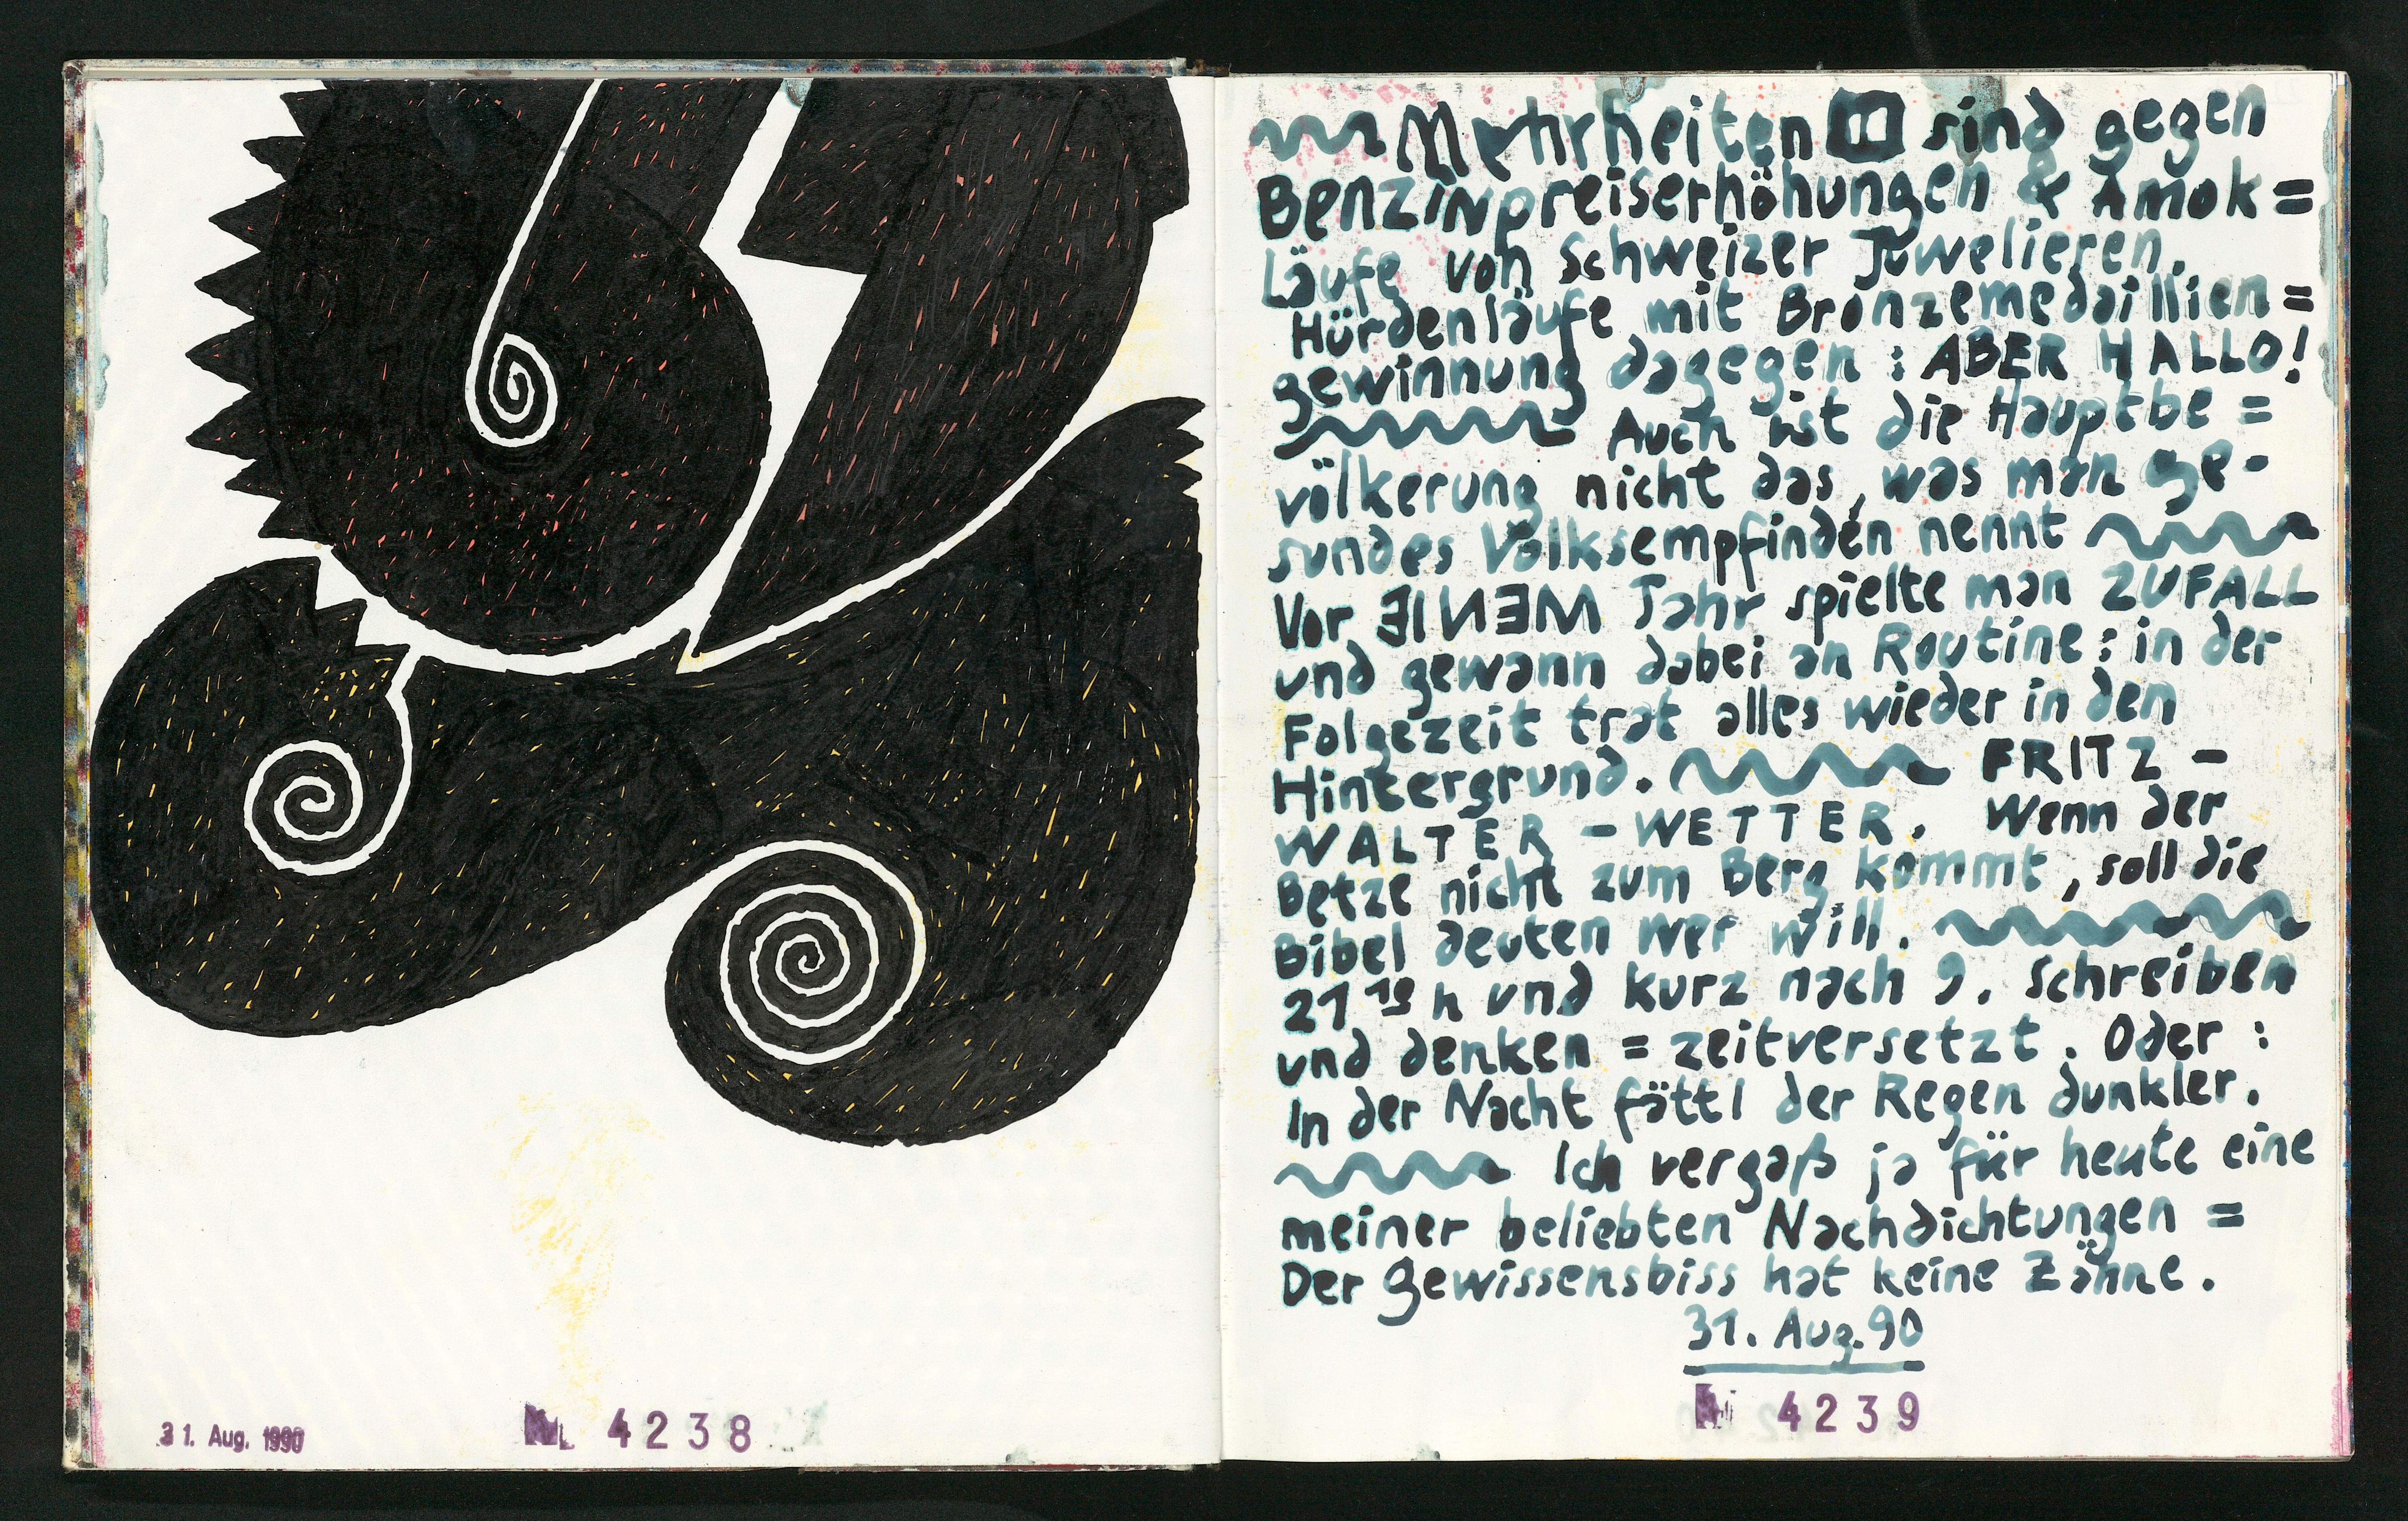 31. Aug. 1990
4238
Mehrheiten sind gegen
Benzinpreiserhöhungen & Amok=
Läufe von Schweizer Juwelieren.
Hürdenläufe mit Bronzemedaillien=
gewinnung dagegen: ABER HALLO!
Auch ist die Hauptbe=
völkerung nicht das, was man ge-
sundes Volksempfinden nennt
Vor EINEM Jahr spielte man ZUFALL
und gewann dabei an Routine: in der
Folgezeit trat alles wieder in den
Hintergrund. FRITZ-
WALTER-WETTER. Wenn der
Betze nicht zum Berg kommt, soll die
Bibel deuten wer will.
21 19 h und kurz nach 9. Schreiben
und denken = zeitversetzt. Oder:
In der Nacht fättl der Regen dunkler.
Ich vergaß ja für heute eine
meiner beliebten Nachdichtungen =
Der Gewissensbiss hat keine Zähne.
31. Aug. 90
4239